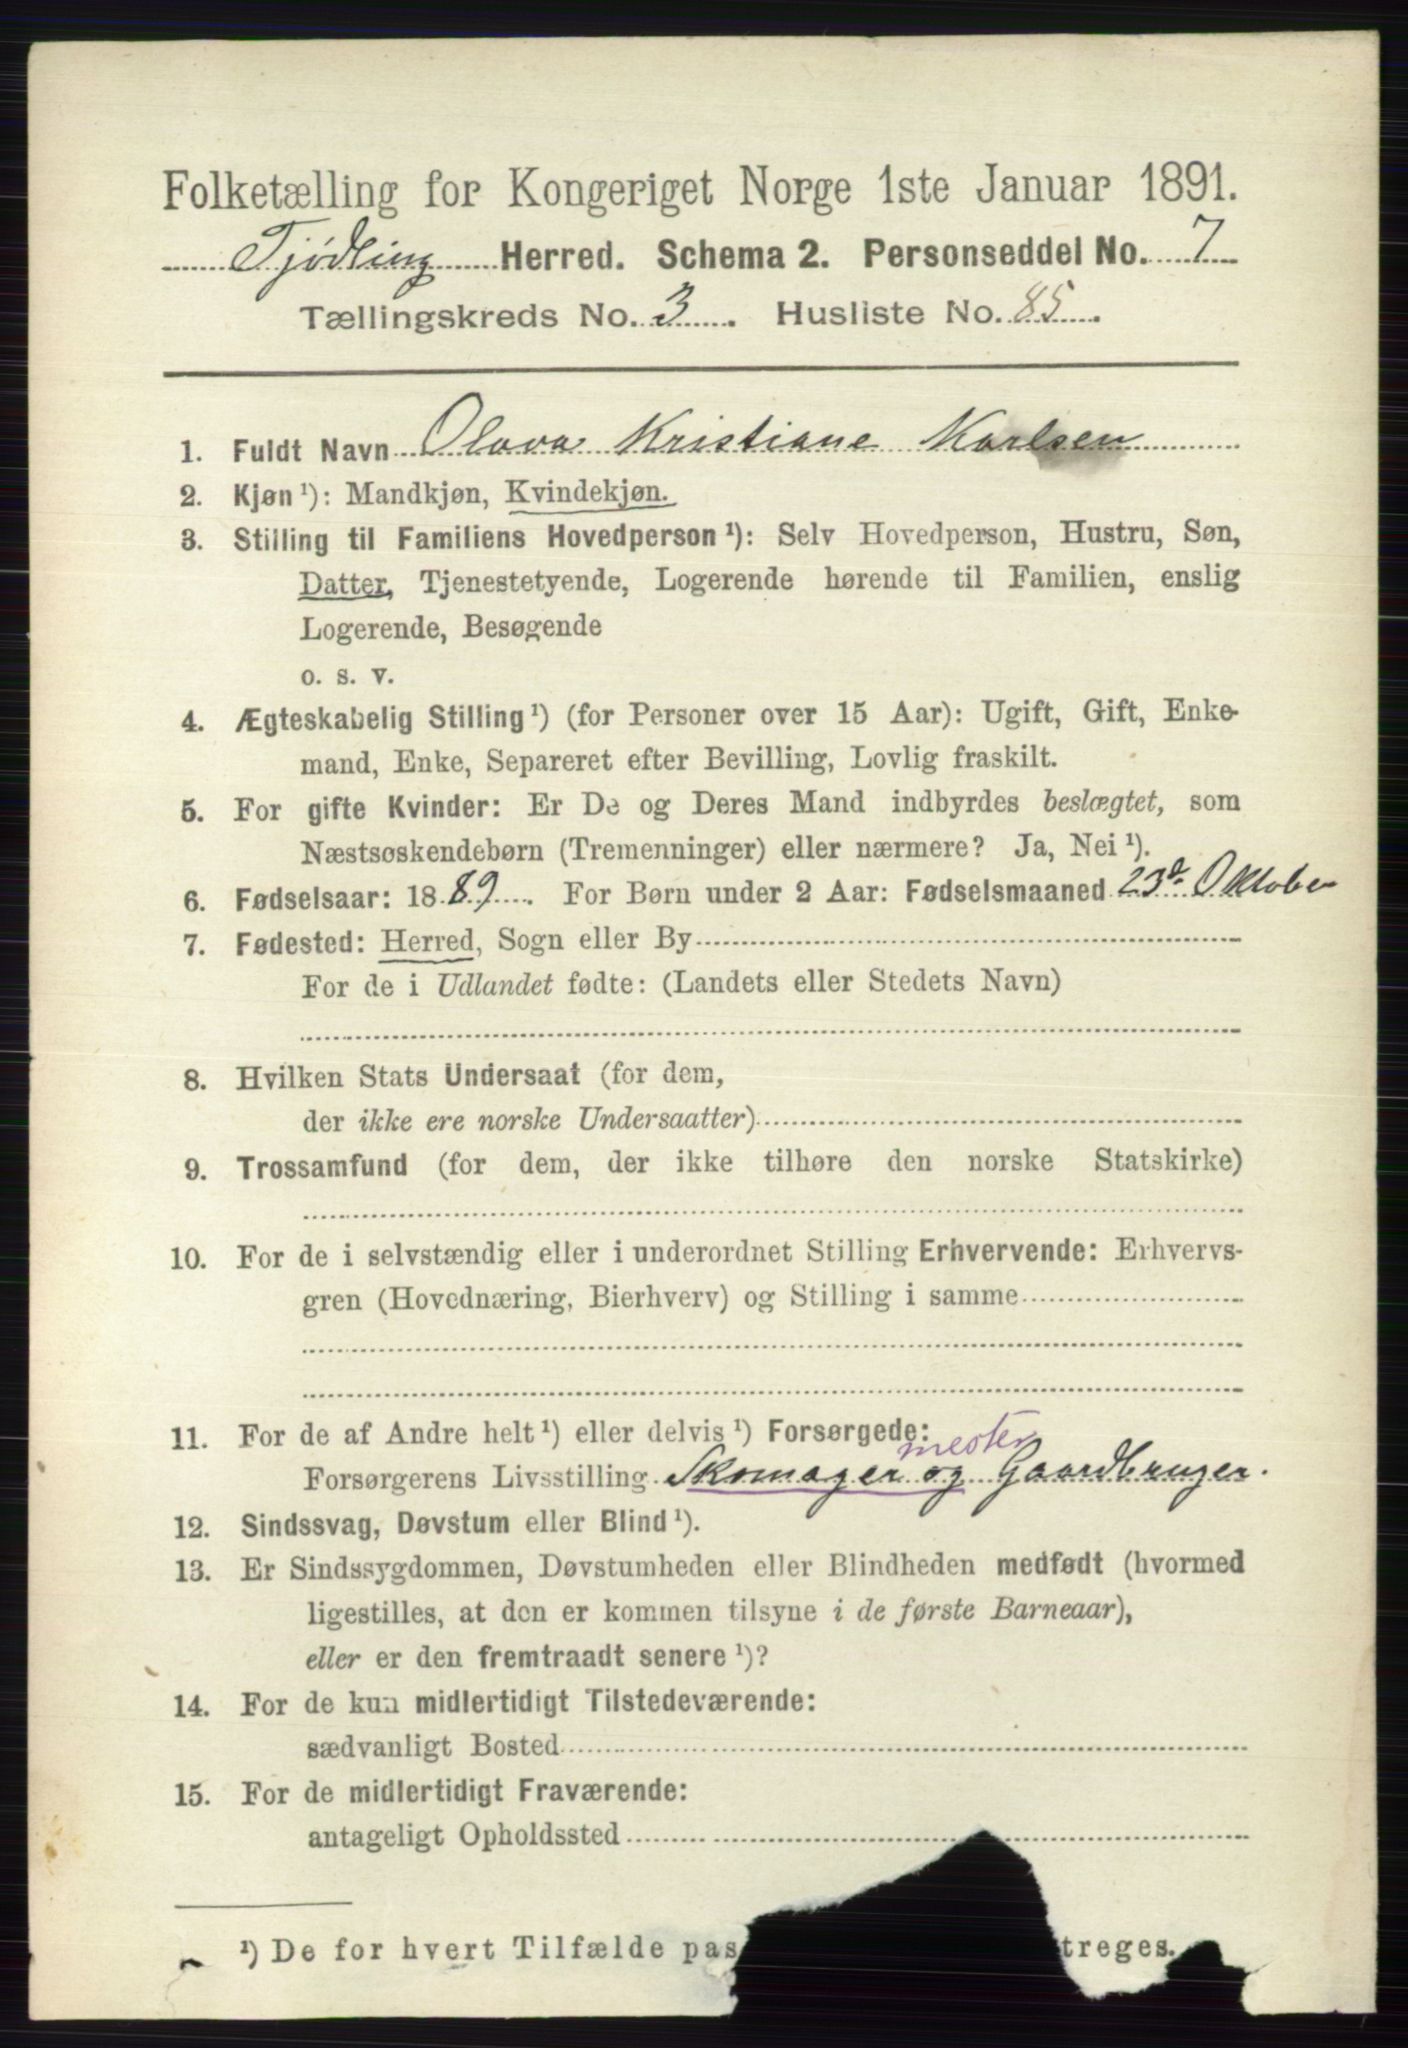 Folketælling for Kongeriget Norge 1ste Januar 1891.
Tjødling Herred. Schema 2. Personseddel No. 7
Tællingskreds No. 3. Husliste No. 85.
1. Fuldt Navn Olava Kristiane Karlsen
2. Kjøn ¹): Mandkjøn, Kvindekjøn.
3. Stilling til Familiens Hovedperson ¹): Selv Hovedperson, Hustru, Søn,
Datter, Tjenestetyende, Logerende hørende til Familien, enslig
Logerende, Besøgende
o. s. v.
4. Ægteskabelig Stilling ¹) (for Personer over 15 Aar): Ugift, Gift, Enke-
mand, Enke, Separeret efter Bevilling, Lovlig fraskilt.
5. For gifte Kvinder: Er De og Deres Mand indbyrdes beslægtet, som
Næstsøskendebørn (Tremenninger) eller nærmere? Ja, Nei ¹).
6. Fødselsaar: 1889. For Børn under 2 Aar: Fødselsmaaned 23de Oktober
7. Fødested: Herred, Sogn eller By
For de i Udlandet fødte: (Landets eller Stedets Navn)
8. Hvilken Stats Undersaat (for dem,
der ikke ere norske Undersaatter)
9. Trossamfund (for dem, der ikke tilhøre den norske Statskirke)
10. For de i selvstændig eller i underordnet Stilling Erhvervende: Erhvervs-
gren (Hovednæring, Bierhverv) og Stilling i samme
11. For de af Andre helt ¹) eller delvis ¹) Forsørgede:
mester
Forsørgerens Livsstilling Skomager og Gaardbruger.
12. Sindssvag, Døvstum eller Blind ¹).
13. Er Sindssygdommen, Døvstumheden eller Blindheden medfødt (hvormed
ligestilles, at den er kommen tilsyne i de første Barneaar),
eller er den fremtraadt senere ¹)?
14. For de kun midlertidigt Tilstedeværende:
sædvanligt Bosted
15. For de midlertidigt Fraværende:
antageligt Opholdssted
¹) De for hvert Tilfælde pas treges.